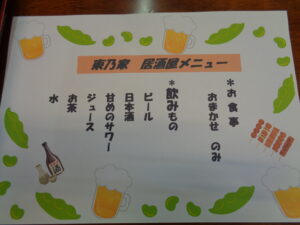 東乃家 居酒屋メニュー
*お食事
おまかせ のみ
*飲みもの
ビール
日本酒
甘めのサワー
ジュース
お茶
水